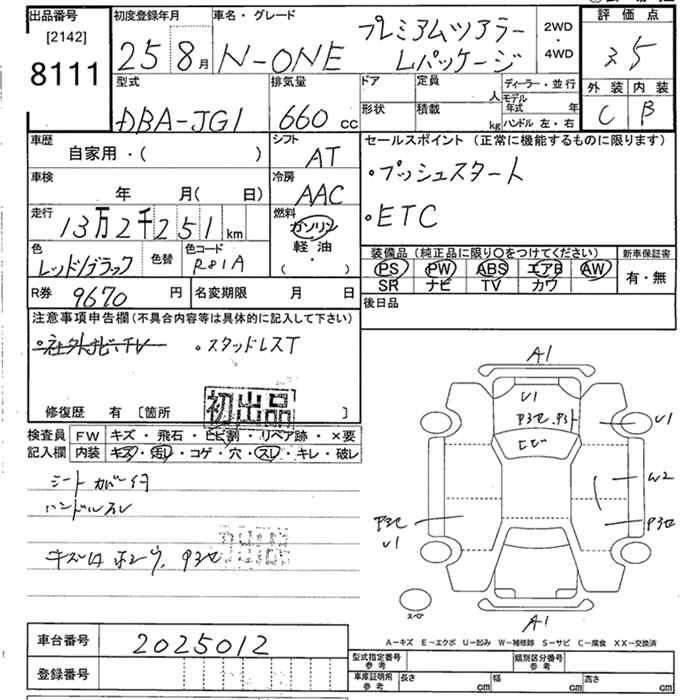 出品番号
[2142]
8111
初度登録年月
25 8 月
車名・グレード
N-ONE
プレミアムツアラー
Lパッケージ
2WD
・
4WD
評価点
3.5
外装 内装
C B
型式
DBA-JG1
排気量
660 cc
ドア
定員
人
形状
積載
kg
ディーラー・並行
モデル年式 年
ハンドル 左・右
車歴
自家用・( )
シフト
AT
車検
年 月( 日)
冷房
AAC
走行
13万2千251 km
燃料
ガソリン
軽油
・
( )
色
レッド/ブラック
色替
色コード
R81A
R券 9670 円
名変期限 月 日
セールスポイント (正常に機能するものに限ります)
・プッシュスタート
・ETC
装備品 (純正品に限り〇をつけてください)
PS PW ABS エアB AW
SR ナビ TV カワ
新車保証書
有・無
後日品
注意事項申告欄 (不具合内容等は具体的に記入して下さい)
・スタッドレスT
初出品
修復歴 有 [箇所 ]
検査員
記入欄
FW キズ・飛石・ヒビ割・リペア跡・×要
内装 キズ・汚レ・コゲ・穴・スレ・キレ・破レ
シートカバー付
ハンドルスレ
A1
U1
ヒビ
U1
W2
U1
A1
スペア
A-キズ E-エクボ U-凹み W-補修跡 S-サビ C-腐食 XX-交換済
車台番号 2025012
登録番号
型式指定番号
参考
類別区分番号
参考
車庫証明用
参考
長さ cm
幅 cm
高さ cm